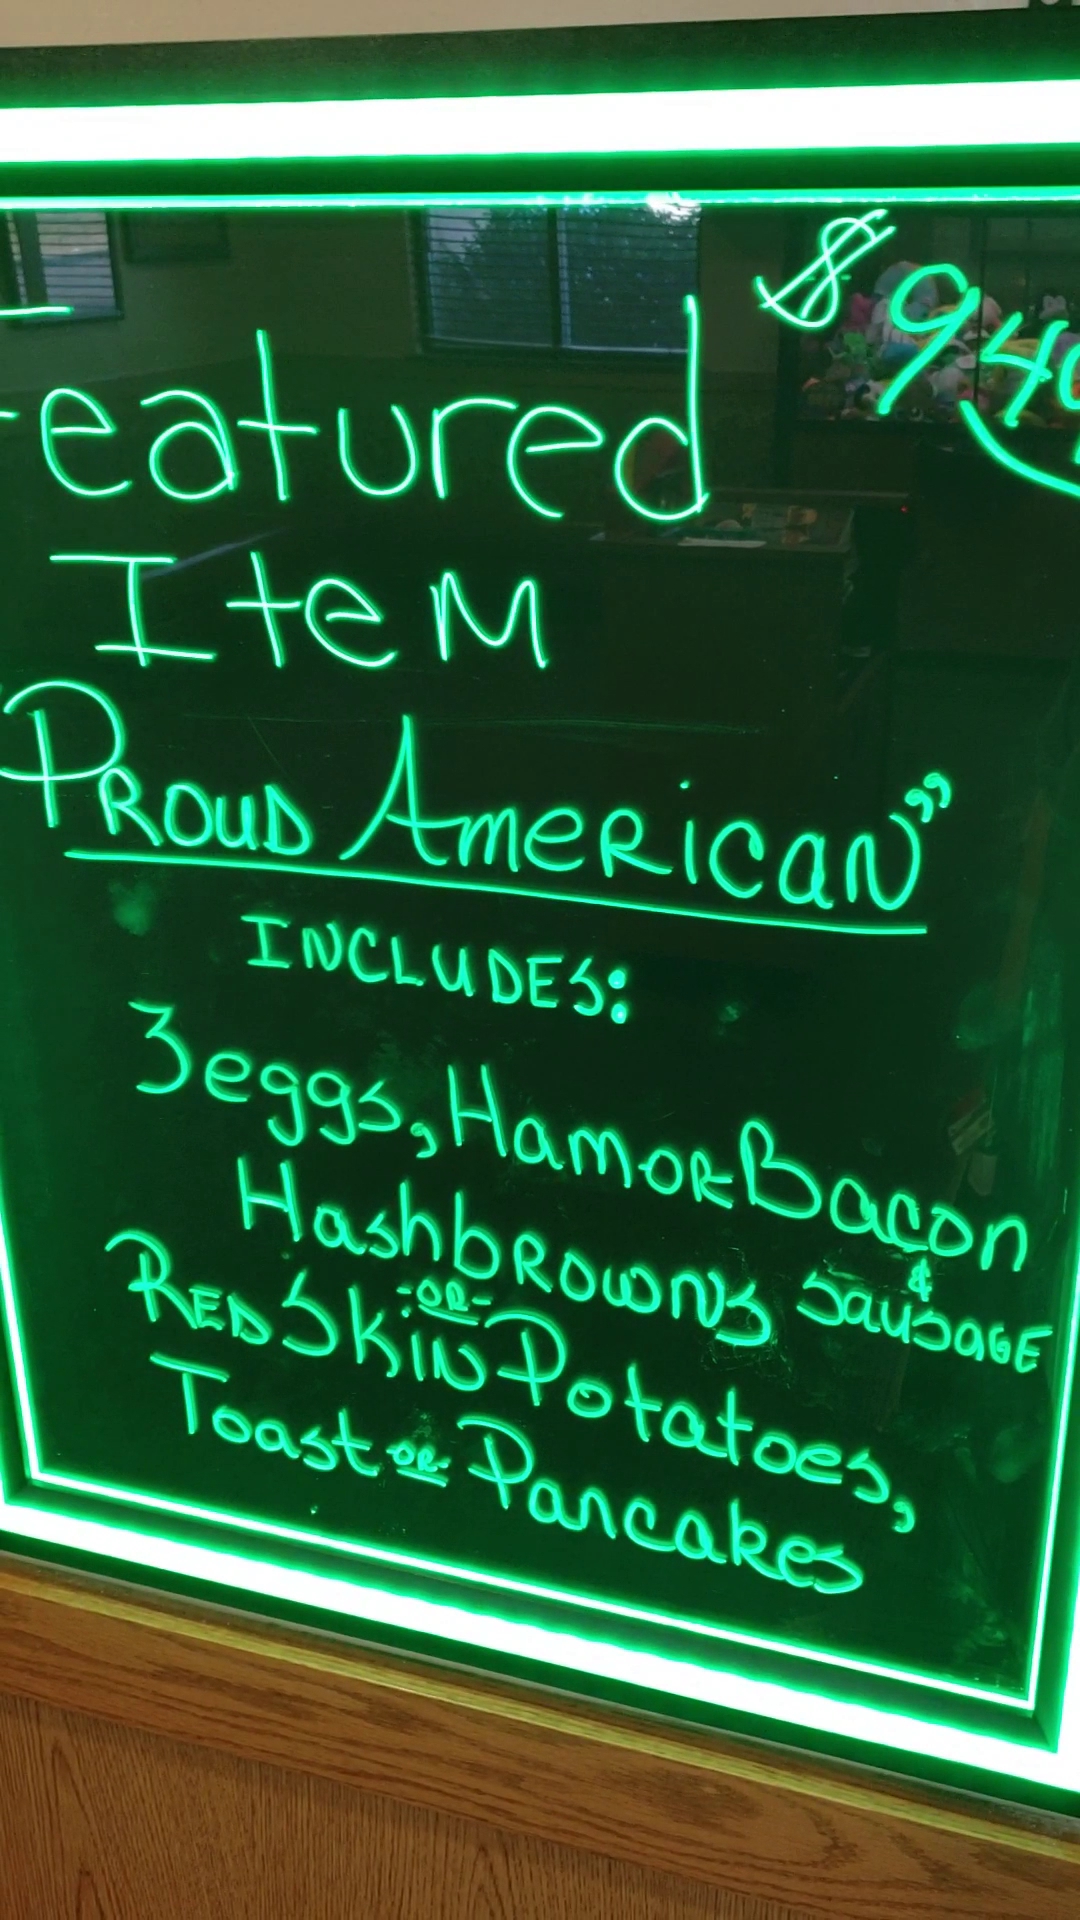 $949
Featured
Item
"Proud American"
INCLUDES:
3 eggs, Ham or Bacon
& Sausage
Hashbrowns
-OR-
Red Skin Potatoes,
Toast or Pancakes